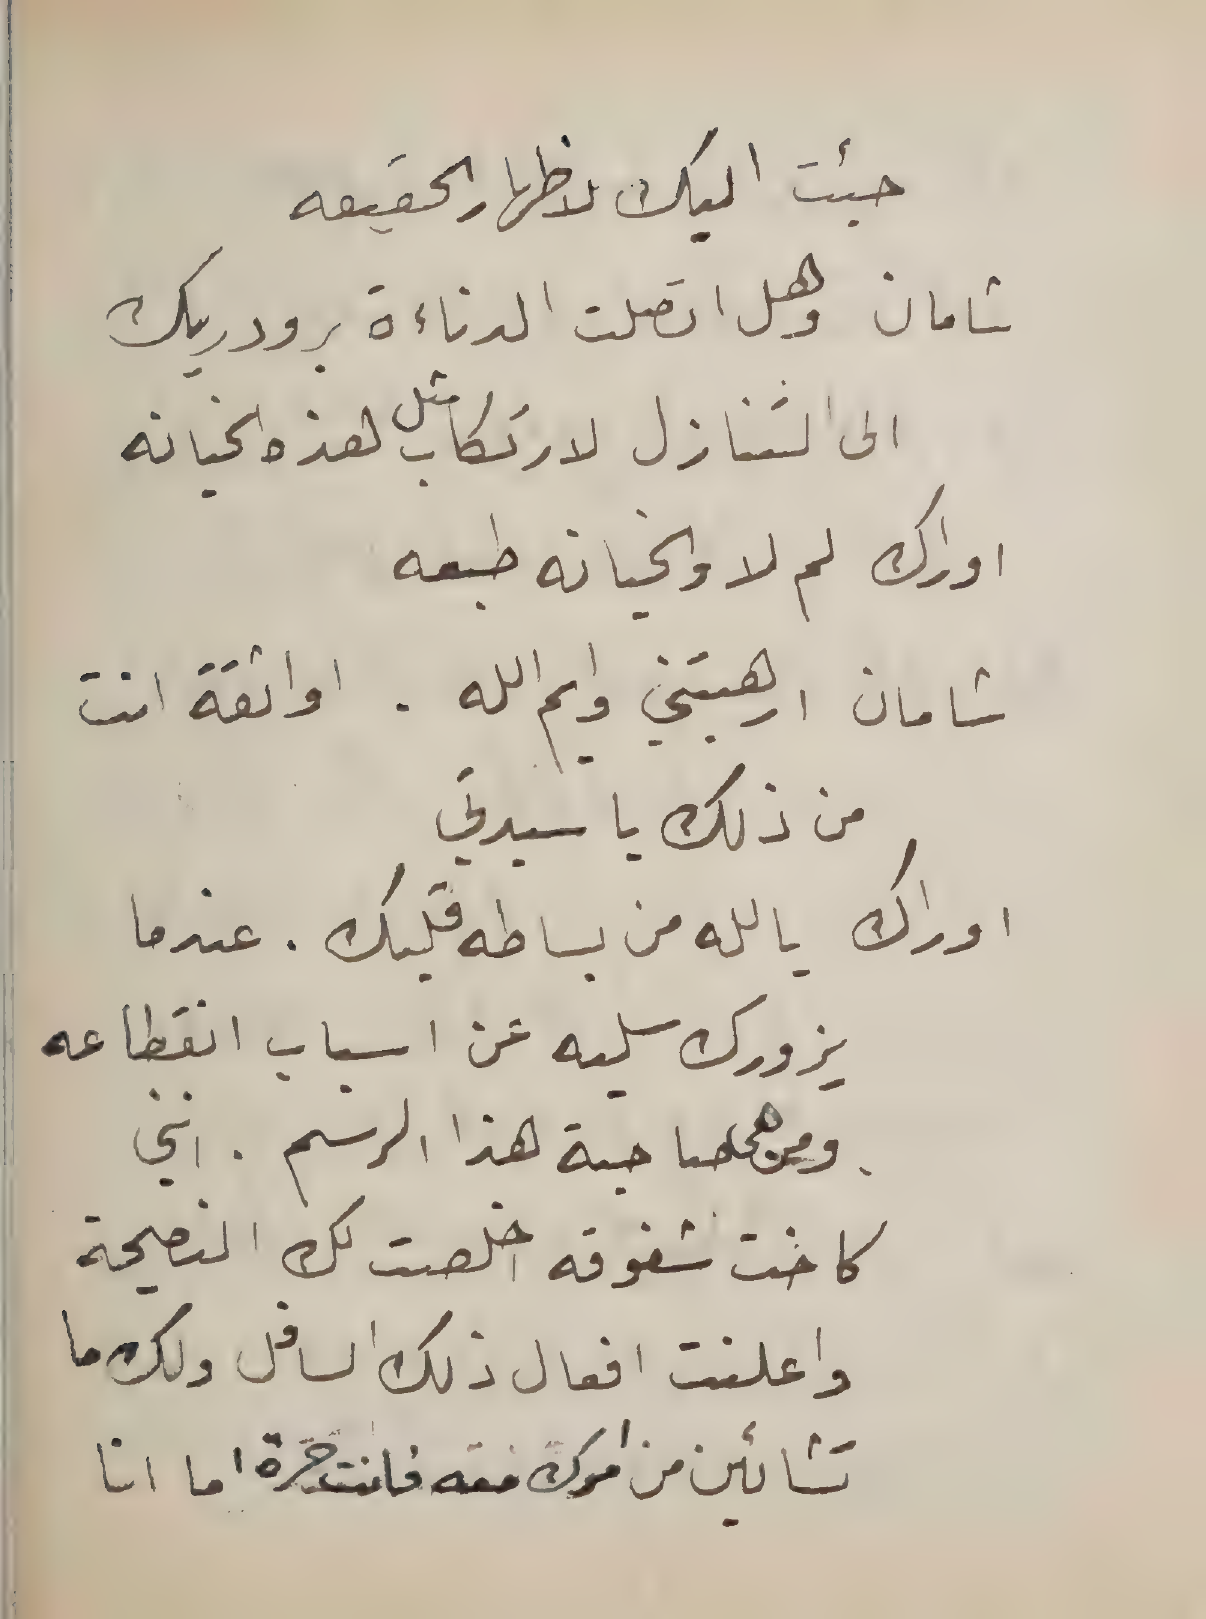 جئت اليك لاظهار الحقيقه
شامان وهل اتصلت الدناءة برودريك
الى التنازل لارتكاب مثل هذه الخيانه
اوراك لم لا والخيانه طبعه
شامان ارهبتني وايم الله . اواثقة انت
من ذلك يا سيدتي
اوراك يالله من بساطه قلبك . عندما
يزورك سليه عن اسباب انقطاعه
ومن هي صاحبة هذا الرسم . انني
كاخت شفوقه اخلصت لك النصيحة
واعلنت افعال ذلك السافل ولك ما
تشائين من امرك معه فانت حرة اما انا